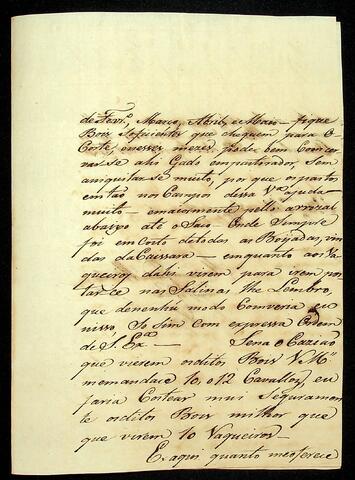 de Fevr.º, Março, Abril, e Maio — fique
Bois soficientes que cheguem para o
Corte, e nesses mezes, pode bem Concer
var se ahi Gado em pastorador, Sem
aniquilar-se muito, por que os pastos
em taõ nos Campos dessa V.ª ajuda
muito — e maiormente pello arrozal
abaixo até o Saco — Onde Sempre
foi em Couto de todas as Boiadas, vin
das da Caissara — em quanto aos Va
queiros, dahi virem para irem por
tarce nas Salinas lhe Lembro,
que de nenhũ modo Comveria eu
nisso, So Sim com expressa Ordem
de S. Ex.ª — Sena o Caziaõ
que vierem os ditos Bois V. M.ce
me mandace 10, o 12 Cavallos, eu
faria Costear mui Seguramen
te os ditos Bois milhor que
que virem 10 Vaqueiros —
E aqui quanto me oferece